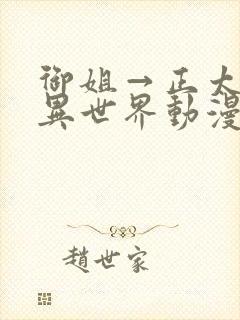 御姐→正太
異世界動漫
趙世家